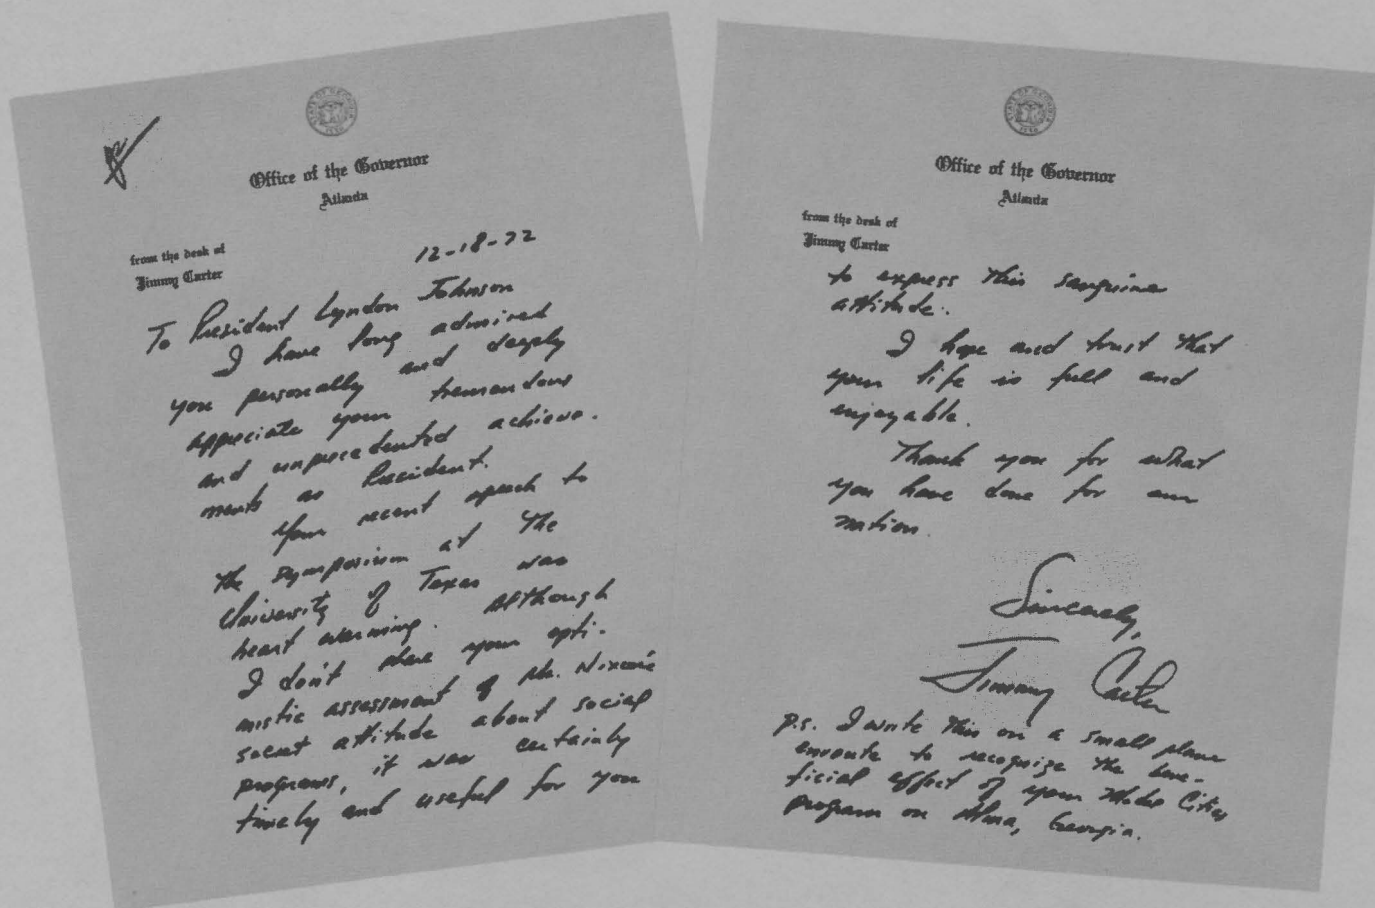 STATE OF GEORGIA
1776
Office of the Governor
Atlanta
from the desk of
Jimmy Carter
12-18-72
To President Lyndon Johnson
I have long admired
you personally and deeply
appreciate your tremendous
and unprecedented achieve-
ments as President.
Your recent speech to
the symposium at the
University of Texas was
heart warming. Although
I don't share your opti-
mistic assessment of Mr. Nixon's
secret attitude about social
programs, it was certainly
timely and useful for you
STATE OF GEORGIA
1776
Office of the Governor
Atlanta
from the desk of
Jimmy Carter
to express this sanguine
attitude.
I hope and trust that
your life is full and
enjoyable.
Thank you for what
you have done for our
nation.
Sincerely,
Jimmy Carter
p.s. I write this on a small plane
enroute to recognize the bene-
ficial effect of your Model Cities
program on Alma, Georgia.